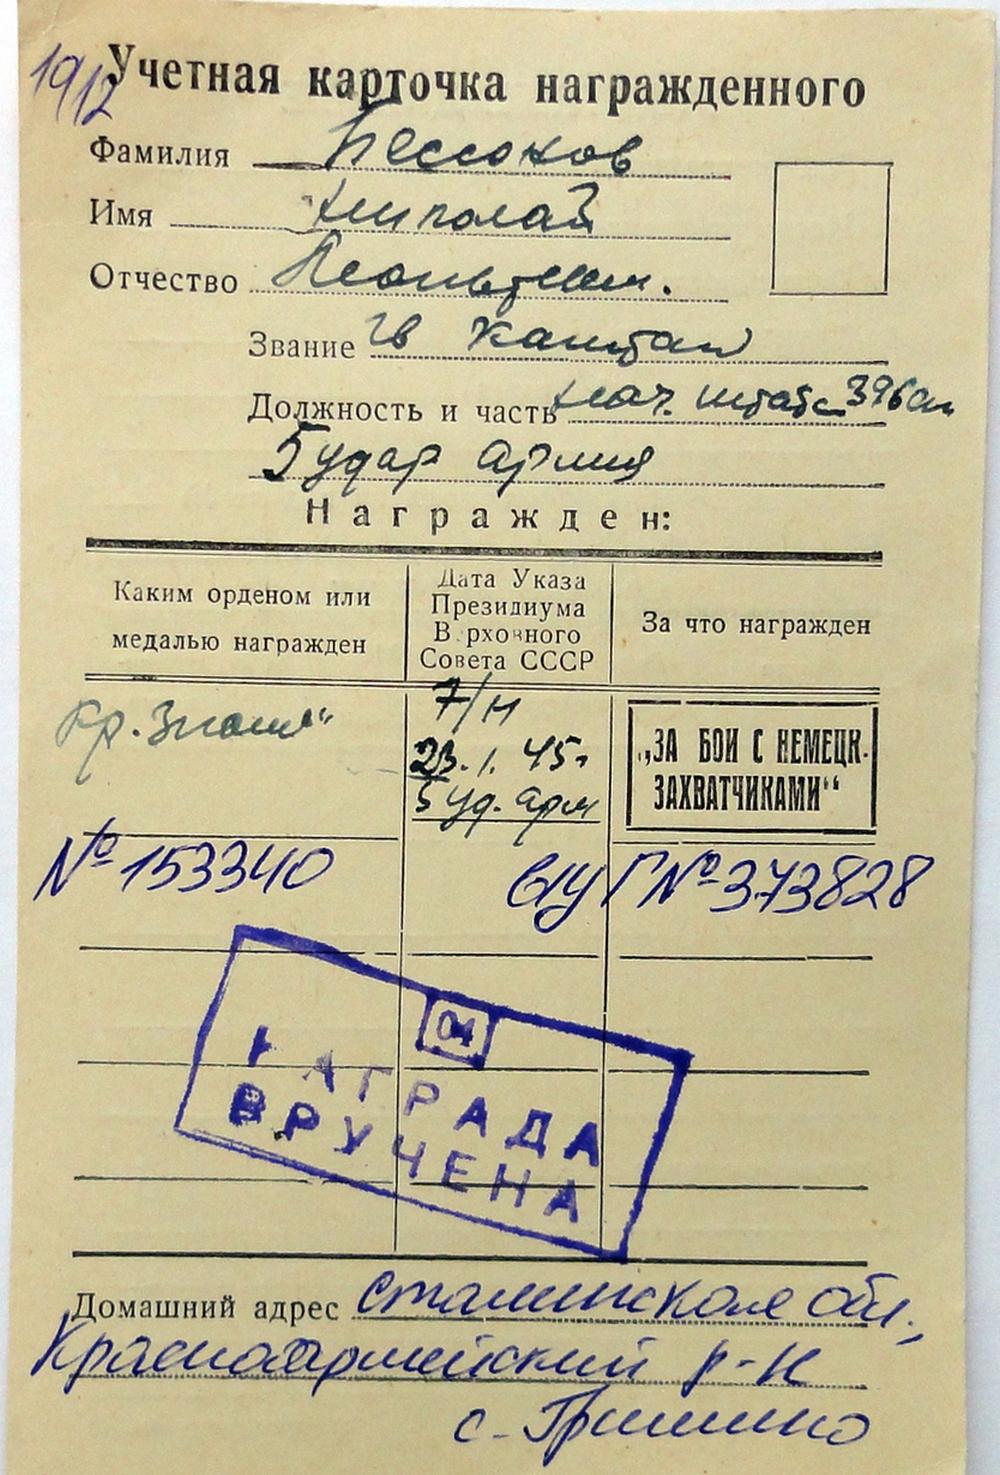 19/12
Учетная карточка награжденного
Фамилия Бессонов
Имя Николай
Отчество
Звание гв капитан
Должность и часть нач. штаба
5 удар армия
Награжден:
Каким орденом или
медалью награжден
Дата Указа
Президиума
Верховного
Совета СССР
За что награжден
Кр. Знамя"
7/н
23.1.45г
5 уд. арм
„ЗА БОИ С НЕМЕЦК.
ЗАХВАТЧИКАМИ“
№ 153340
ВУГ № 373828
04
НАГРАДА
ВРУЧЕНА
Домашний адрес Сталинская обл.,
Красноармейский р-н
с. Гришино